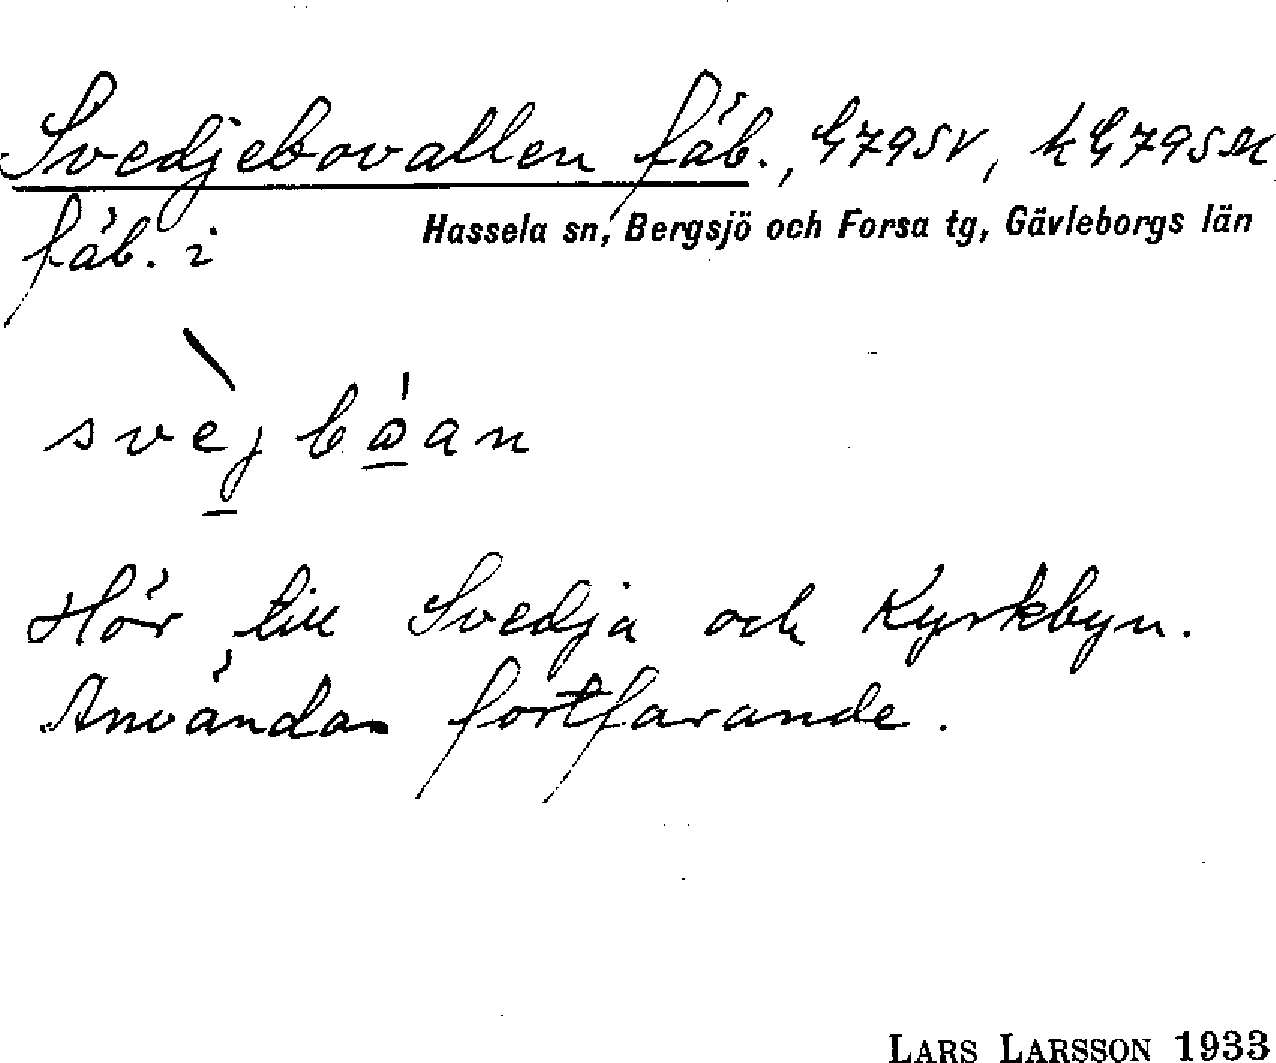 Svedjebovallen fäb., G79SV, kG79SM
fäb. i Hassela sn, Bergsjö och Forsa tg, Gävleborgs län
Hör till Svedja och Kyrkbyn.
Användas fortfarande.
LARS LARSSON 1933